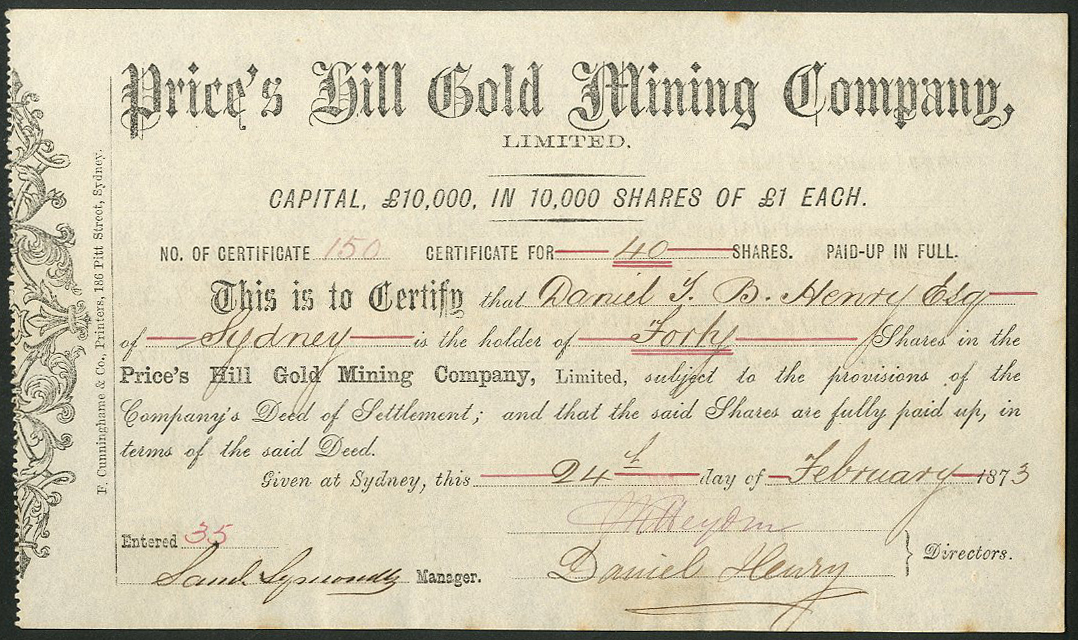 Price's Hill Gold Mining Company,
LIMITED.
CAPITAL, £10,000, IN 10,000 SHARES OF £1 EACH.
NO. OF CERTIFICATE 150 CERTIFICATE FOR 40 SHARES. PAID-UP IN FULL.
This is to Certify that Daniel T. B. Henry Esq
of Sydney is the holder of Forty Shares in the
Price's Hill Gold Mining Company, Limited, subject to the provisions of the
Company's Deed of Settlement; and that the said Shares are fully paid up, in
terms of the said Deed.
Given at Sydney, this 24th day of February 1873
Entered 35
Daniel Henry Directors.
Saml. Manager.
F. Cunninghame & Co., Printers, 186 Pitt Street, Sydney.